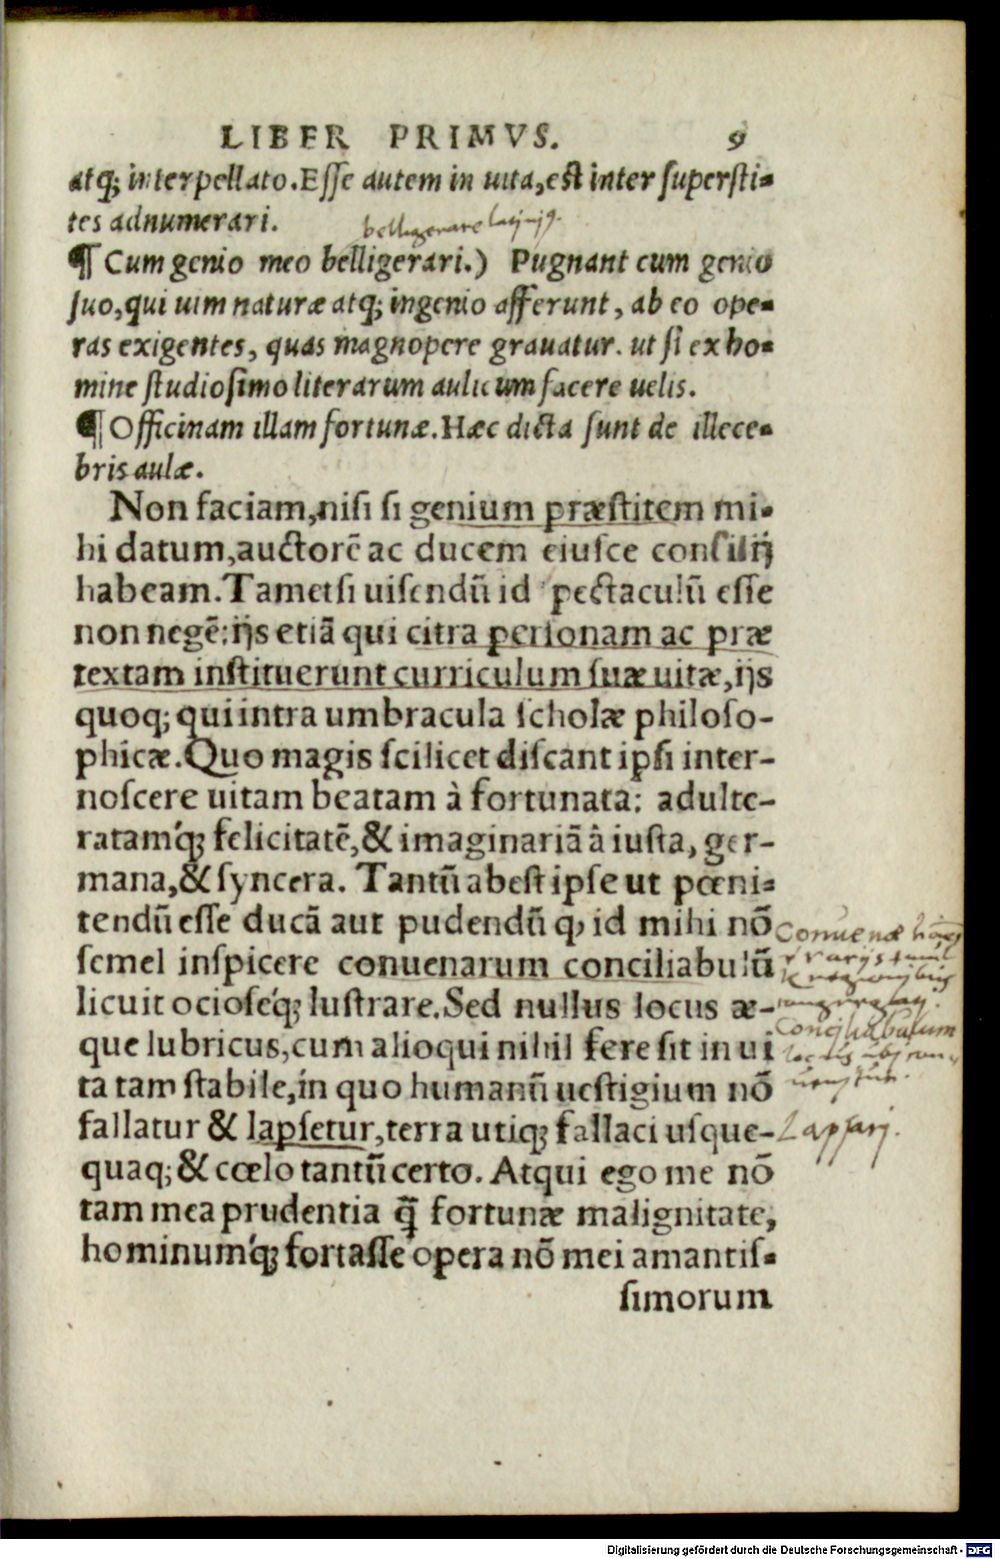 LIBER PRIMVS. 9
atq; interpellato. Esse autem in uita, est inter supersti-
tes adnumerari.
belligerare latinis.
¶ Cum genio meo belligerari.) Pugnant cum genio
suo, qui uim naturæ atq; ingenio afferunt, ab eo ope-
ras exigentes, quas magnopere grauatur. ut si ex ho-
mine studiosimo literarum aulicum facere uelis.
¶ Officinam illam fortunæ. Hæc dicta sunt de illece-
bris aulæ.
Non faciam, nisi si genium præstitem mi-
hi datum, auctorē ac ducem eiusce consilij
habeam. Tametsi uisendū id spectaculū esse
non negē: ijs etiā qui citra personam ac præ
textam instituerunt curriculum suæ uitæ, ijs
quoq; qui intra umbracula scholæ philoso-
phicæ. Quo magis scilicet discant ipsi inter-
noscere uitam beatam à fortunata: adulte-
ratamq́; felicitatē, & imaginariā à iusta, ger-
mana, & syncera. Tantū abest ipse ut pœni-
tendū esse ducā aut pudendū ꝙ id mihi nō
semel inspicere conuenarum conciliabulū
licuit ocioseq́; lustrare. Sed nullus locus æ-
que lubricus, cum alioqui nihil fere sit in ui
ta tam stabile, in quo humanū uestigium nō
fallatur & lapsetur, terra utiq; fallaci usque-
quaq; & cœlo tantū certo. Atqui ego me nō
tam mea prudentia q̄ fortunæ malignitate,
hominumq́; fortasse opera nō mei amantis-
simorum
Conuenæ
Conciliabulum
Lapsari.
Digitalisierung gefördert durch die Deutsche Forschungsgemeinschaft - DFG